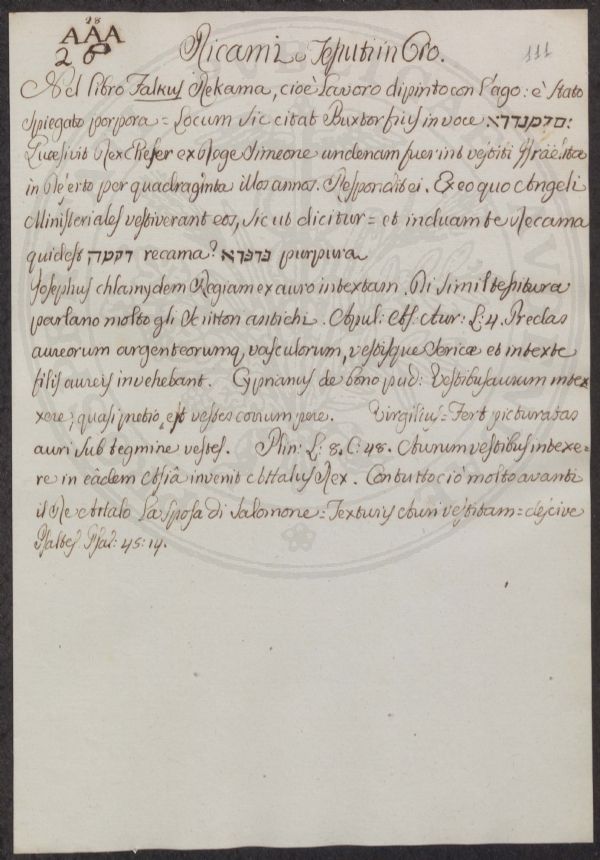 28
AAA
26
Ricami, o Tessuti in Oro.
111
Nel libro Falkus Rekama, cioè lavoro dipinto con l'ago: è stato
spiegato porpora = Locum sic citat Buxtorfius in voce
Quæsivit Rex ex Rege Simeone undenam fuerint vestiti Israelitæ
in Deserto per quadraginta illos annos. Respondit ei. Ex eo quo Angeli
Ministeriales vestiverant eos, sic ut dicitur = et induam te Recama
quid est רקמה recama? purpura
Josephus chlamydem Regiam ex auro intextam. Di simil tessitura
parlano molto gli Scrittori antichi. Apul: As: Aur: L: 4. Preclas
aureorum argenteorumq, vasculorum, vestisque Sericæ et intextæ
filis aureis invehebant. Cyprianus de bono pud: Vestibus aurum intex
xere: quasi pretio est vestes corrumpere. Virgilius = Fert picturatas
auri subtegmine vestes. Plin: L: 8. C: 48. Aurum vestibus intexe=
re in eâdem Asiâ invenit Attalus Rex. Con tutto ciò molto avanti
il Re Attalo la sposa di Salomone = Texturis Auri vestitam = descive
Psaltes Psal: 45: 14.